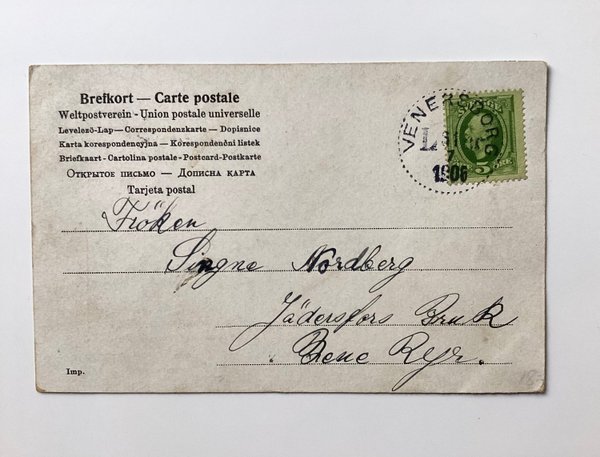 Brefkort — Carte postale
Weltpostverein - Union postale universelle
Levelező-Lap — Correspondenzkarte — Dopisnice
Karta korespondencyjna — Korespondenční lístek
Briefkaart - Cartolina postale - Postcard - Postkarte
Открытое письмо — Дописна карта
Tarjeta postal
VENERSBORG
7
1906
5
Fröken
Singne Nordberg
Jädersfors Bruk
Imp.